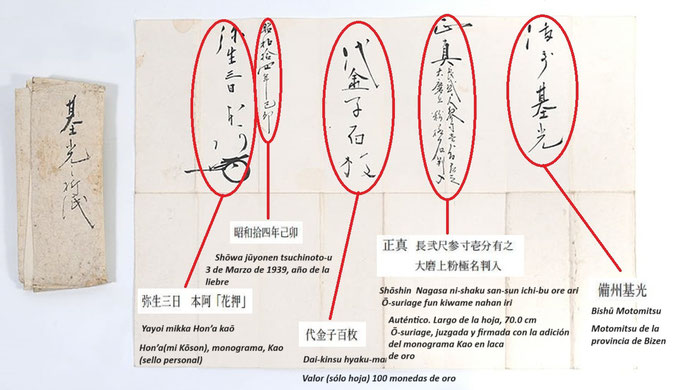 基光折紙
備州基光
正真 長弐尺参寸壱分有之
大磨上粉極名判入
代金子百枚
昭和拾四年己卯
弥生三日 本阿
昭和拾四年己卯
Shōwa jūyonen tsuchinoto-u
3 de Marzo de 1939, año de la
liebre
弥生三日 本阿「花押」
Yayoi mikka Hon’a kaō
Hon’a(mi Kōson), monograma, Kao
(sello personal)
代金子百枚
Dai-kinsu hyaku-mai
Valor (sólo hoja) 100 monedas de oro
正真 長弐尺参寸壱分有之
大磨上粉極名判入
Shōshin Nagasa ni-shaku san-sun ichi-bu ore ari
Ō-suriage fun kiwame nahan iri
Auténtico. Largo de la hoja, 70.0 cm
Ō-suriage, juzgada y firmada con la adición
del monograma Kao en laca
de oro
備州基光
Bishū Motomitsu
Motomitsu de la
provincia de Bizen